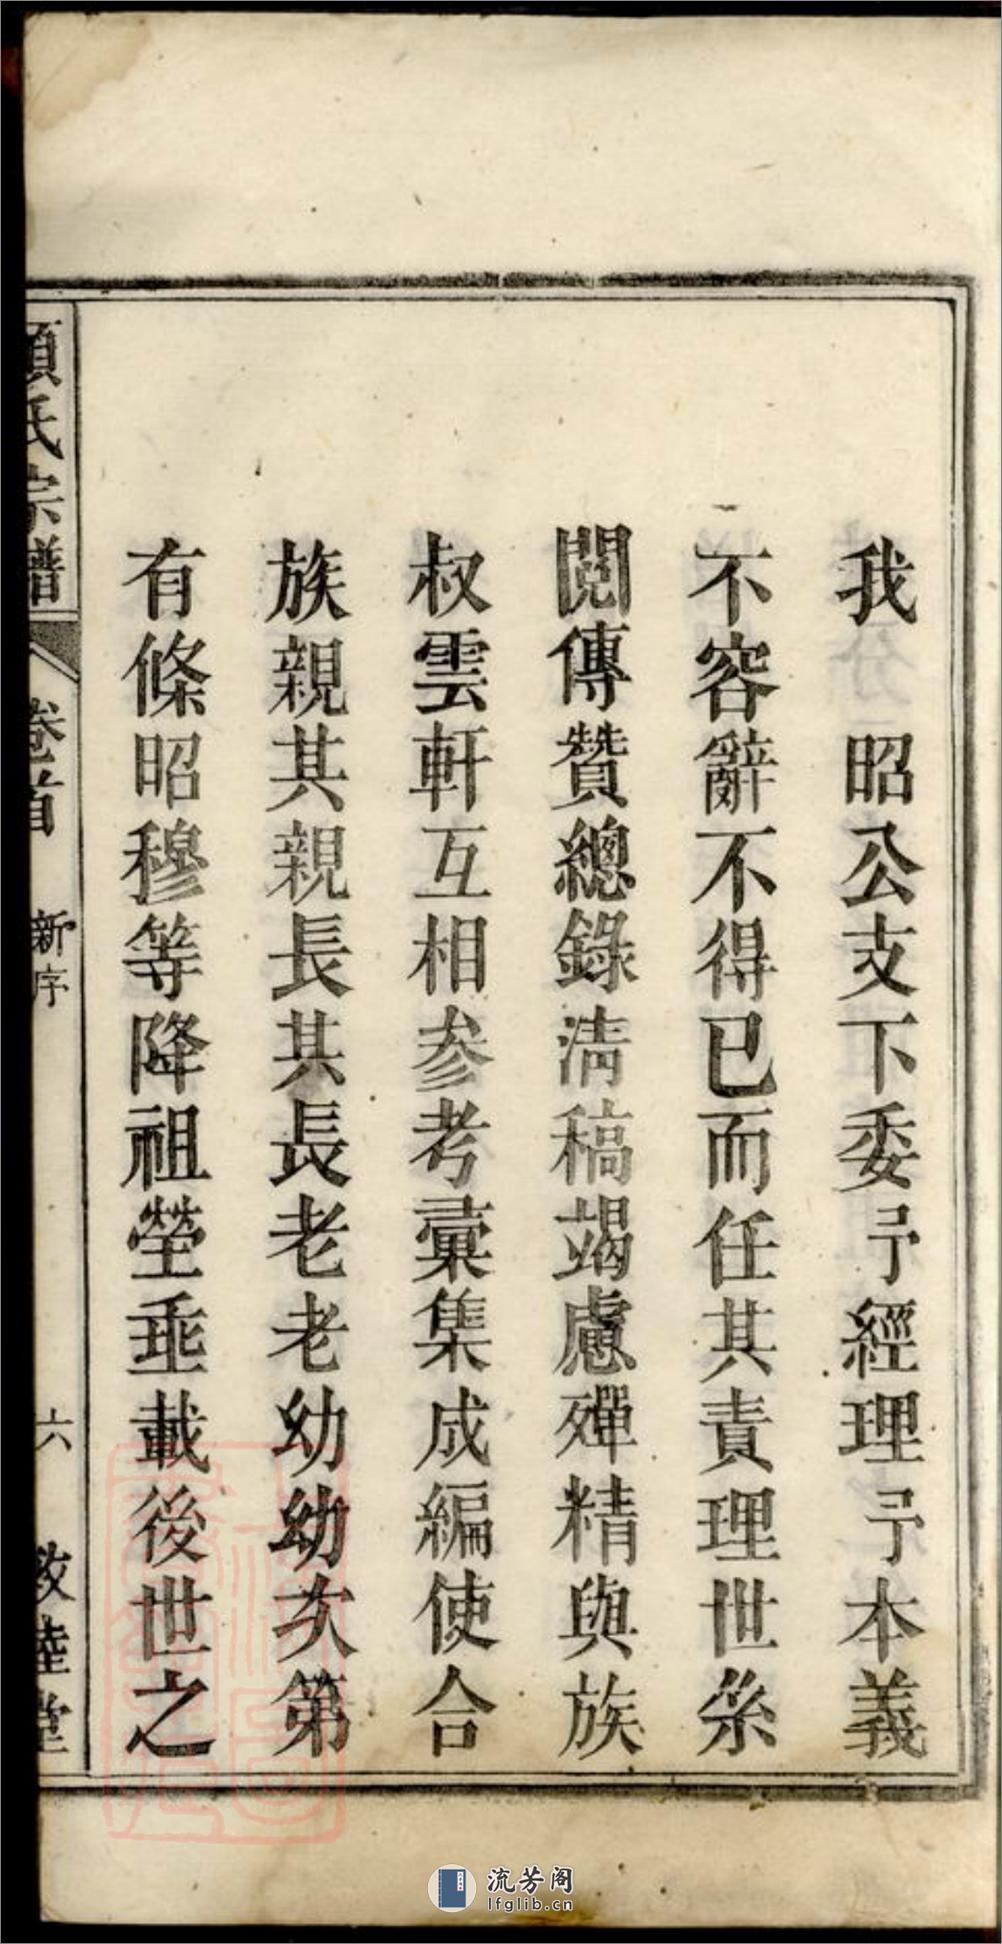 我 昭公支下委予經理予本義
不容辭不得已而任其責理世糸
閱傳贊總錄淸稿竭慮殫精與族
叔雲軒互相參考彙集成編使合
族親其親長其長老老幼幼次第
有條昭穆等降祖塋垂載後世之
氏宗譜
卷首
新序
六
敦睦堂
流芳阁
lfglib.cn